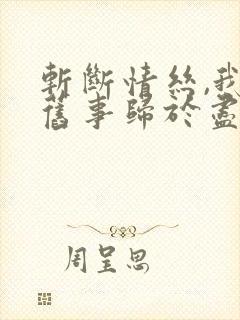 斬斷情絲,我
舊事歸於盡
周呈思